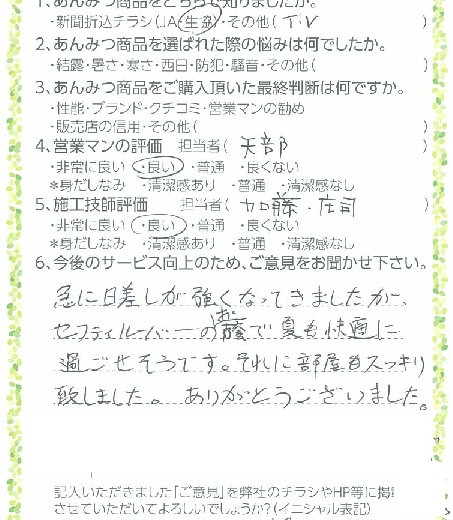 1、あんみつ商品をどちらで知りましたか。
・新聞折込チラシ(JA・生活)・その他( T.V )
2、あんみつ商品を選ばれた際の悩みは何でしたか。
・結露・暑さ・寒さ・西日・防犯・騒音・その他( )
3、あんみつ商品をご購入頂いた最終判断は何ですか。
・性能・ブランド・クチコミ・営業マンの勧め
・販売店の信用・その他( )
4、営業マンの評価 担当者( 天部 )
・非常に良い ・良い ・普通 ・良くない
*身だしなみ ・清潔感あり ・普通 ・清潔感なし
5、施工技師評価 担当者( 加藤・庄司 )
・非常に良い ・良い ・普通 ・良くない
*身だしなみ ・清潔感あり ・普通 ・清潔感なし
6、今後のサービス向上のため、ご意見をお聞かせ下さい。
急に日差しが強くなってきましたが、
セーフティルーバーのお蔭で夏も快適に
過ごせそうです。それに部屋もスッキリ
致しました。ありがとうございました。
記入いただきました「ご意見」を弊社のチラシやHP等に掲
させていただいてよろしいでしょうか?(イニシャル表記)